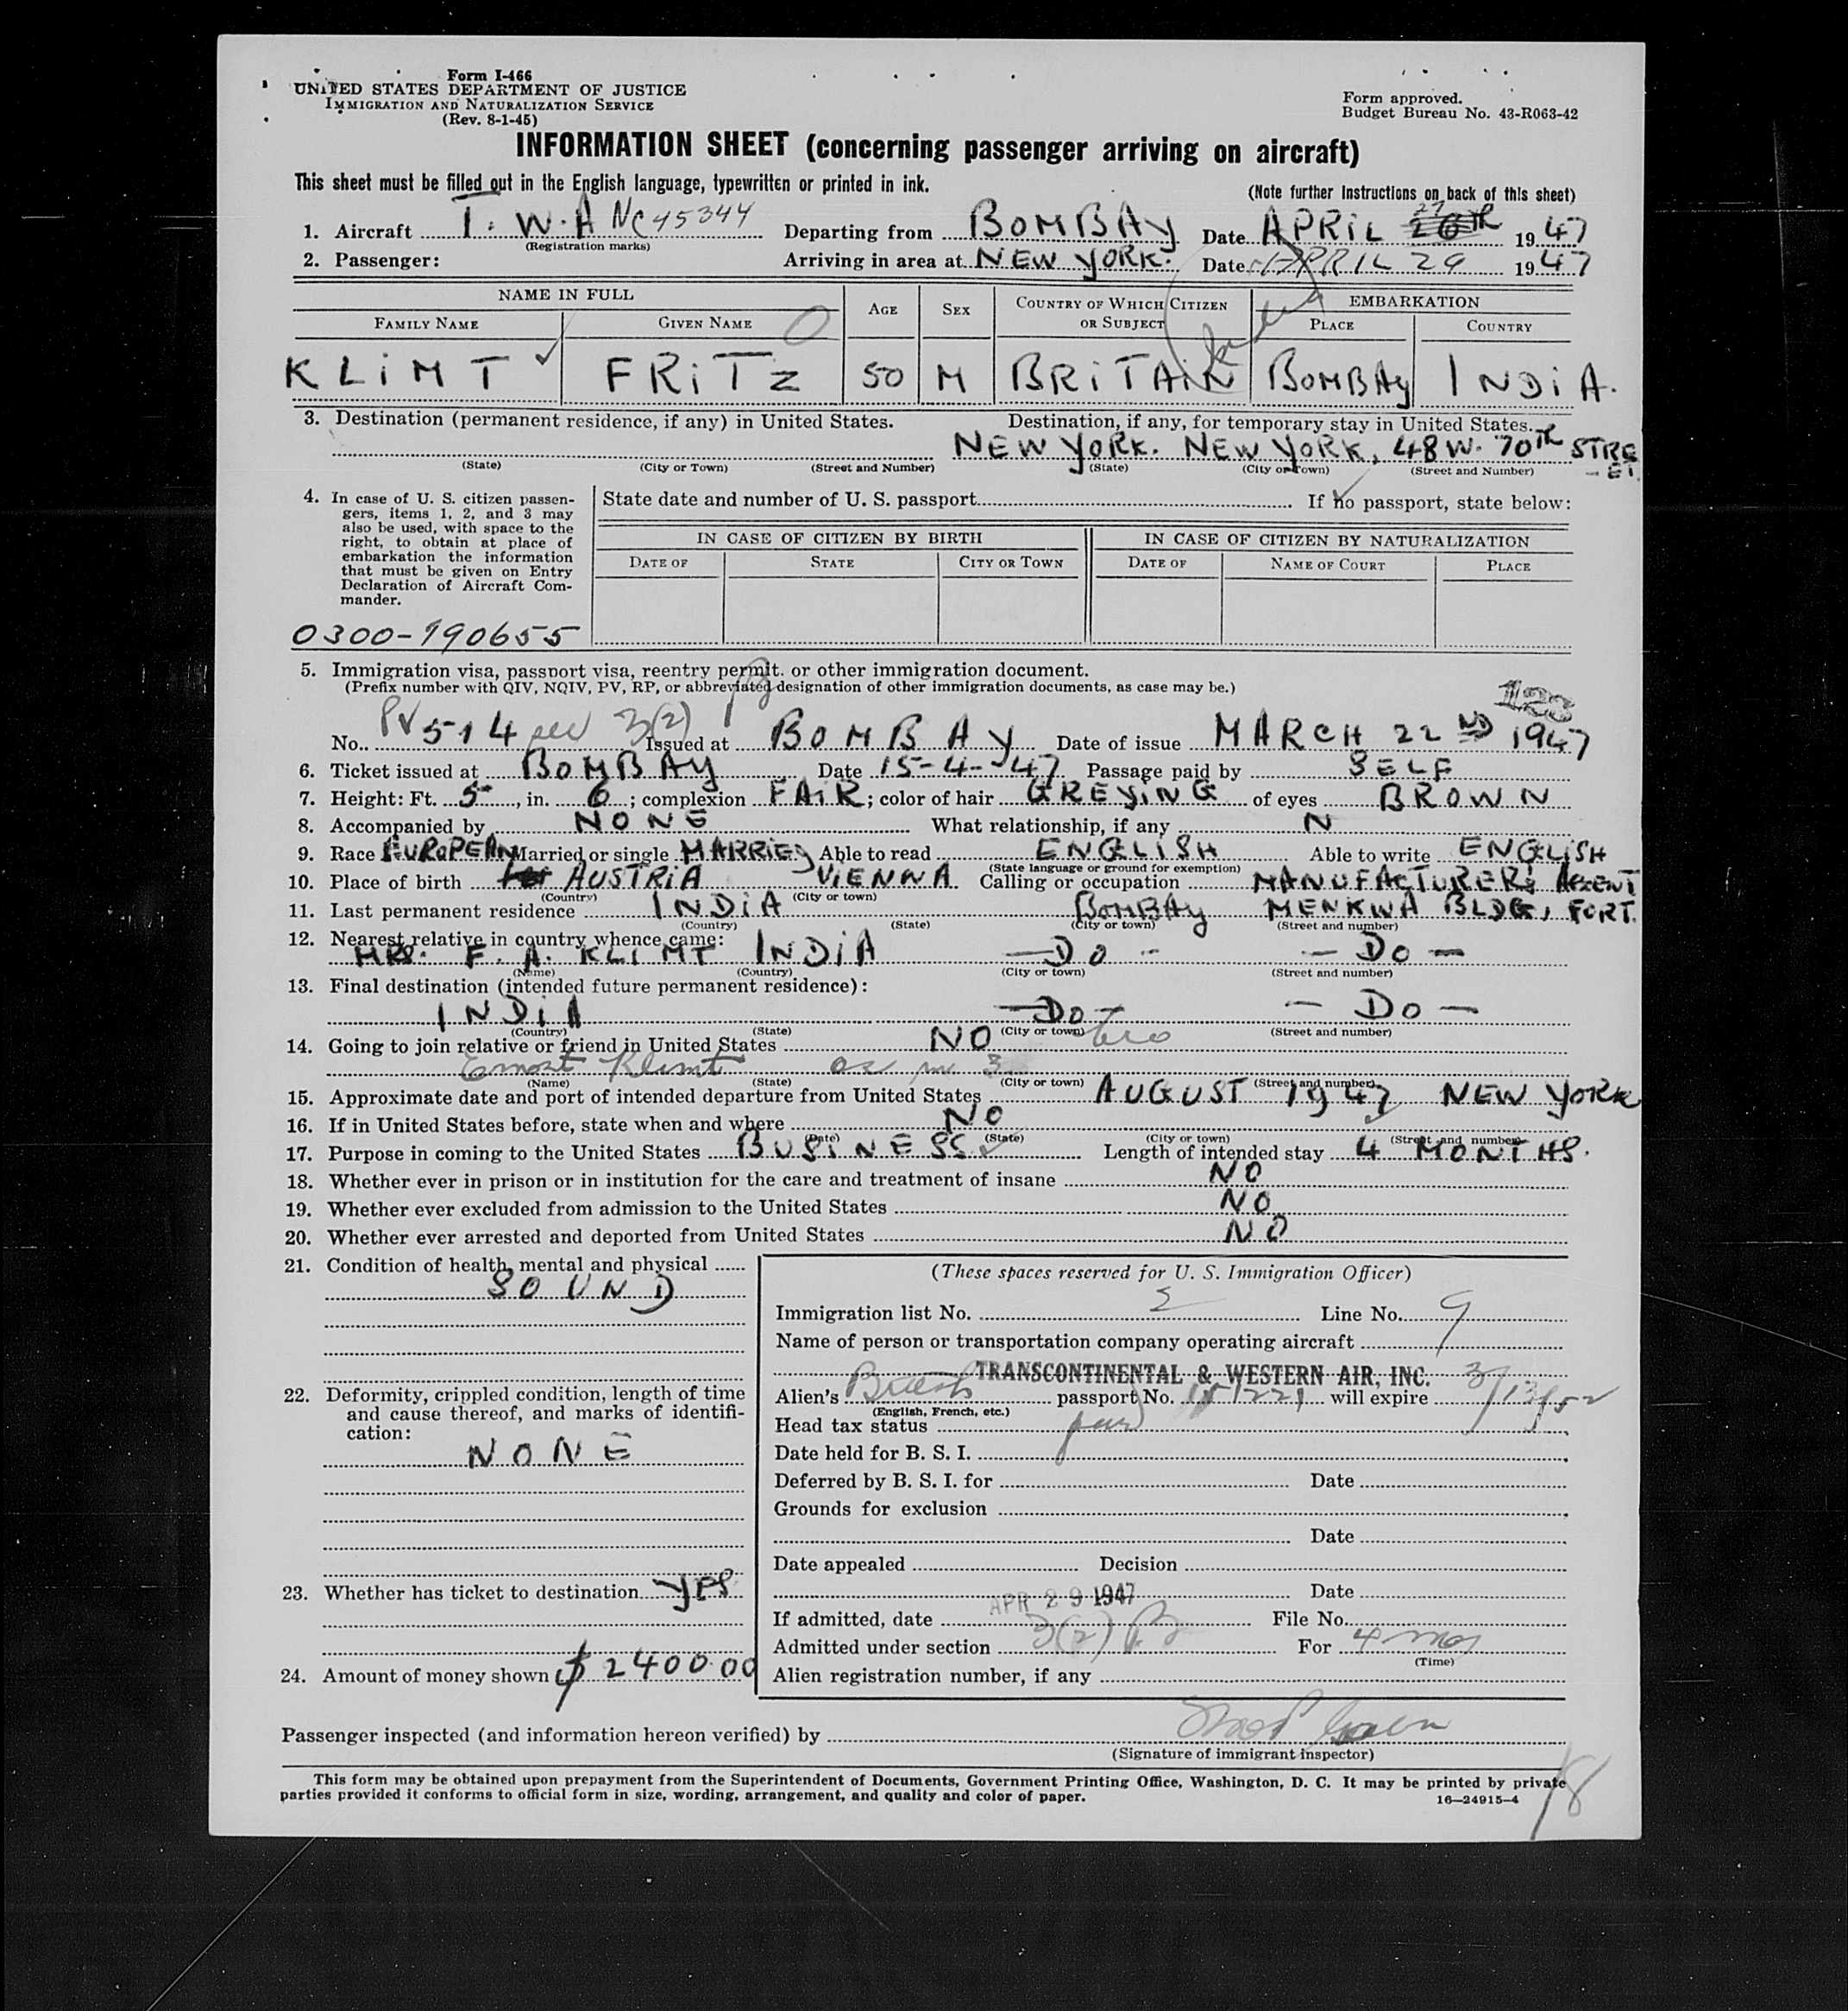 Form I-466
UNITED STATES DEPARTMENT OF JUSTICE
IMMIGRATION AND NATURALIZATION SERVICE
(Rev. 8-1-45)
Form approved.
Budget Bureau No. 43-R063-42
INFORMATION SHEET (concerning passenger arriving on aircraft)
This sheet must be filled out in the English language, typewritten or printed in ink.
(Note further instructions on back of this sheet)
1. Aircraft T. W. A NC 45344 Departing from BOMBAY Date APRIL 27 TH 1947
(Registration marks)
2. Passenger: Arriving in area at NEW YORK. Date APRIL 29 1947
NAME IN FULL AGE SEX COUNTRY OF WHICH CITIZEN OR SUBJECT EMBARKATION
FAMILY NAME GIVEN NAME PLACE COUNTRY
KLIMT FRITZ 50 M BRITAIN BOMBAY INDIA.
3. Destination (permanent residence, if any) in United States. Destination, if any, for temporary stay in United States.
NEW YORK. NEW YORK, 48 W. 70TH STRE-ET.
(State) (City or Town) (Street and Number) (State) (City or Town) (Street and Number)
4. In case of U. S. citizen passen-
gers, items 1, 2, and 3 may
also be used, with space to the
right, to obtain at place of
embarkation the information
that must be given on Entry
Declaration of Aircraft Com-
mander.
State date and number of U. S. passport If no passport, state below:
IN CASE OF CITIZEN BY BIRTH IN CASE OF CITIZEN BY NATURALIZATION
DATE OF STATE CITY OR TOWN DATE OF NAME OF COURT PLACE
0300-190655
5. Immigration visa, passport visa, reentry permit. or other immigration document.
(Prefix number with QIV, NQIV, PV, RP, or abbreviated designation of other immigration documents, as case may be.)
123
No. PV 514 sec 3(2) Issued at BOMBAY Date of issue MARCH 22ND 1947
6. Ticket issued at BOMBAY Date 15-4-47 Passage paid by SELF
7. Height: Ft. 5, in. 6; complexion FAIR; color of hair GREYING of eyes BROWN
8. Accompanied by NONE What relationship, if any N
9. Race EUROPEAN Married or single MARRIED Able to read ENGLISH Able to write ENGLISH
(State language or ground for exemption)
10. Place of birth AUSTRIA VIENNA Calling or occupation MANUFACTURERS AGENT
(Country) (City or town)
11. Last permanent residence INDIA BOMBAY MENKWA BLDG, FORT.
(Country) (State) (City or town) (Street and number)
12. Nearest relative in country whence came:
MRS. F. A. KLIMT INDIA -DO- -DO-
(Name) (Country) (City or town) (Street and number)
13. Final destination (intended future permanent residence):
INDIA -DO- -DO-
(Country) (State) (City or town) (Street and number)
14. Going to join relative or friend in United States NO
Ernost Klimt as in 3
(Name) (State) (City or town) (Street and number)
15. Approximate date and port of intended departure from United States AUGUST 1947 NEW YORK
16. If in United States before, state when and where NO
(Date) (State) (City or town) (Street and number)
17. Purpose in coming to the United States BUSINESS Length of intended stay 4 MONTHS.
18. Whether ever in prison or in institution for the care and treatment of insane NO
19. Whether ever excluded from admission to the United States NO
20. Whether ever arrested and deported from United States NO
21. Condition of health, mental and physical
SOUND
22. Deformity, crippled condition, length of time
and cause thereof, and marks of identifi-
cation:
NONE
23. Whether has ticket to destination YES
24. Amount of money shown $ 2400.00
(These spaces reserved for U. S. Immigration Officer)
Immigration list No. 2 Line No. 9
Name of person or transportation company operating aircraft
TRANSCONTINENTAL & WESTERN AIR, INC.
Alien's British passport No. will expire 3/13/52
(English, French, etc.)
Head tax status paid
Date held for B. S. I.
Deferred by B. S. I. for Date
Grounds for exclusion
Date
Date appealed Decision
Date
If admitted, date APR 29 1947 File No.
Admitted under section 3(2) For 4 mos
(Time)
Alien registration number, if any
Passenger inspected (and information hereon verified) by
(Signature of immigrant inspector)
This form may be obtained upon prepayment from the Superintendent of Documents, Government Printing Office, Washington, D. C. It may be printed by private
parties provided it conforms to official form in size, wording, arrangement, and quality and color of paper.
16—24915-4
18